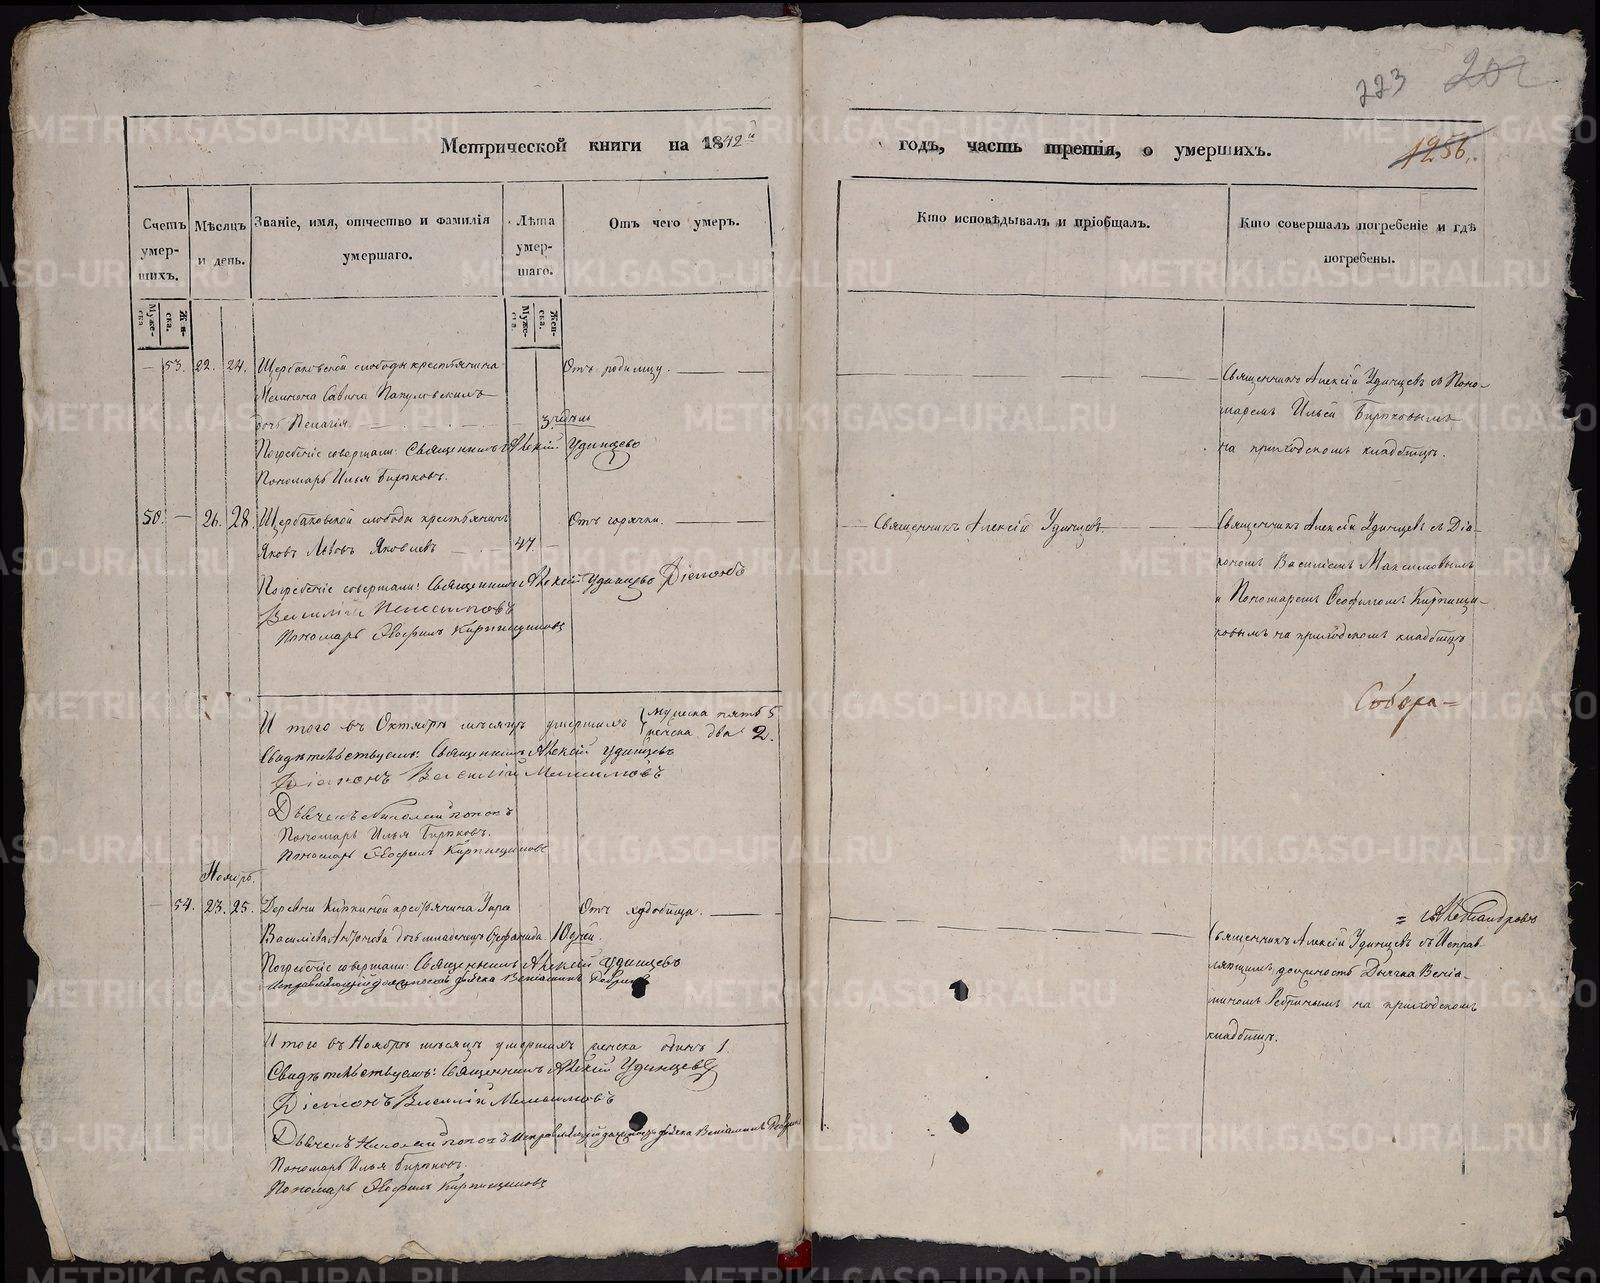 223
1256.
Метрической книги на 1842й
годъ, часть третія, о умершихъ.
Счетъ умер-шихъ.
Мѣсяцъ и день.
Званіе, имя, отчество и фамилія
умершаго.
Лѣта умер-шаго.
Отъ чего умеръ.
Кто исповѣдывалъ и пріобщалъ.
Кто совершалъ погребеніе и гдѣ
погребены.
53. 22. 24. Щербаковской слободы крестьянина
Савина
дочь Пелагія
Отъ родимцу.
Погребеніе совершали: Священникъ Алексій Удинцевъ
Пономарь Илья Бирюковъ.
Священникъ Алексій Удинцевъ съ Поно-
маремъ Ильей Бирюковымъ
на приходскомъ кладбищѣ.
50. — 26. 28. Щербаковской слободы крестьянинъ
Яковъ Яковлевъ 47.
Отъ горячки.
Погребеніе совершали: Священникъ Алексій Удинцевъ Діаконъ
Василій
Пономарь Ѳеофилъ Кирпищиковъ
Священникъ Алексій Удинцевъ
Священникъ Алексій Удинцевъ съ Діа-
кономъ Василіемъ Максимовымъ
и Пономаремъ Ѳеофиломъ Кирпищи-
ковымъ на приходскомъ кладбищѣ
Собора=
И того въ Октябрѣ мѣсяцѣ умершихъ мужеска пять 5
женска два 2.
Свидѣтельствуемъ: Священникъ Алексій Удинцевъ
Діаконъ Василій Максимовъ
Дьячекъ Николай Поповъ
Пономарь Илья Бирюковъ.
Пономарь Ѳеофилъ Кирпищиковъ
Ноябрь.
54. 23. 25. Деревни крестьянина
Василіева дочь младенецъ Стефанида 10 дней.
Отъ худобища.
Погребеніе совершали: Священникъ Алексій Удинцевъ
Исправляющій должность дьячка Веніаминъ
= Александровъ
Священникъ Алексій Удинцевъ съ Исправ-
ляющимъ должность Дьячка Веніа-
миномъ на приходскомъ
кладбищѣ.
И того въ Ноябрѣ мѣсяцѣ умершихъ женска одинъ 1.
Свидѣтельствуемъ: Священникъ Алексій Удинцевъ
Діаконъ Василій Максимовъ
Дьячекъ Николай Поповъ Исправляющій должность дьячка Веніаминъ
Пономарь Илья Бирюковъ.
Пономарь Ѳеофилъ Кирпищиковъ
METRIKI.GASO-URAL.RU